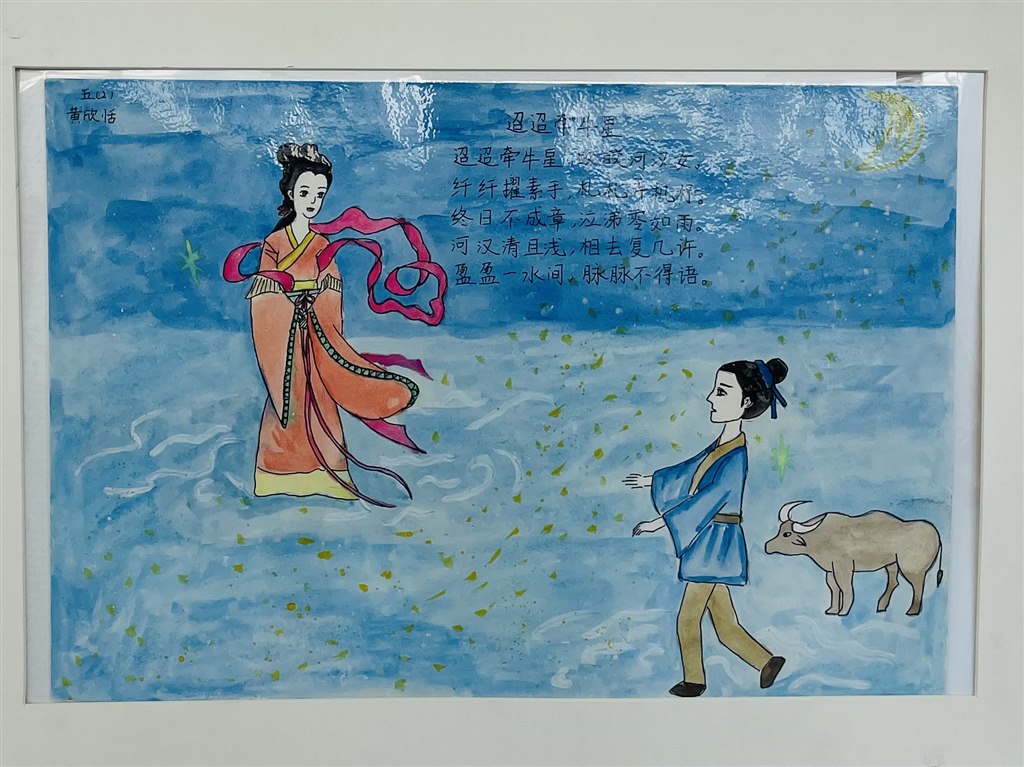 五(2)
黄欣恬
迢迢牵牛星
迢迢牵牛星,皎皎河汉女。
纤纤擢素手,札札弄机杼。
终日不成章,泣涕零如雨。
河汉清且浅,相去复几许。
盈盈一水间,脉脉不得语。